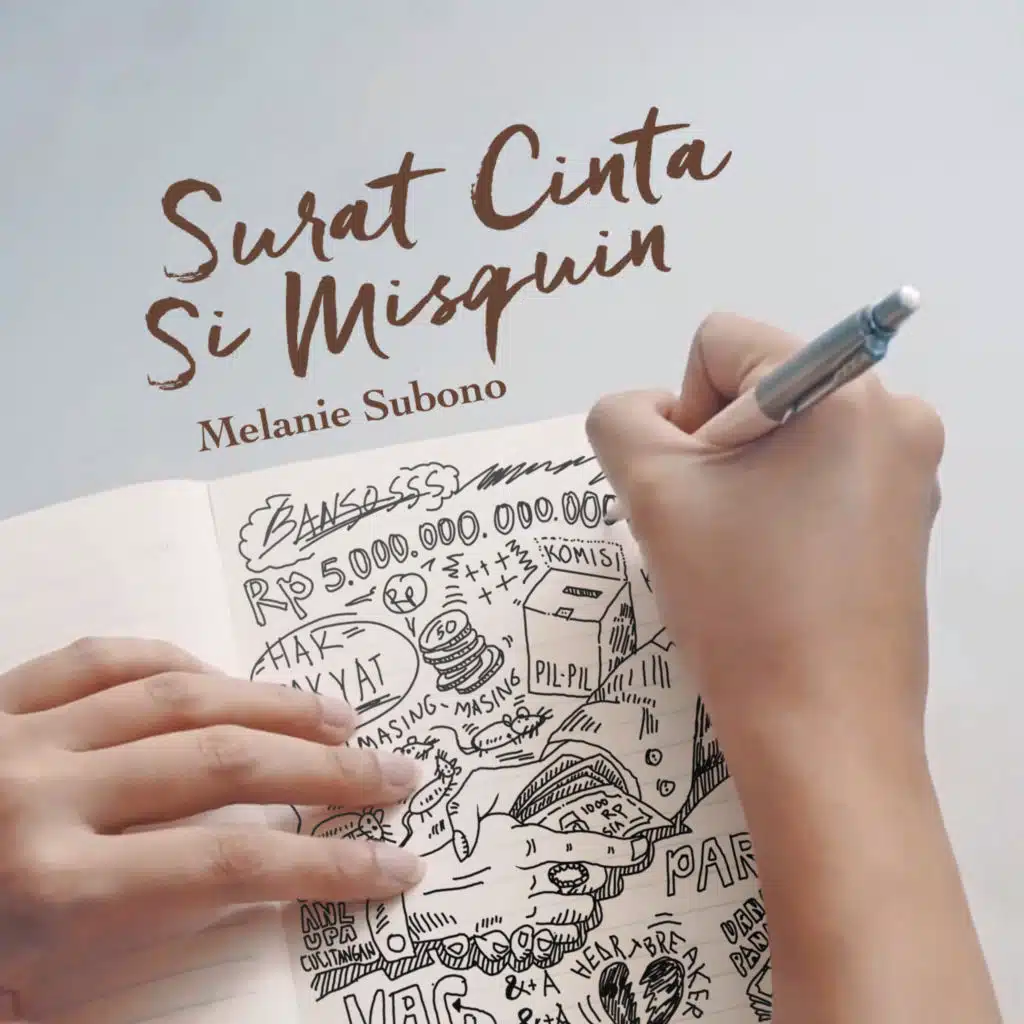 Surat Cinta
Si Misquin
Melanie Subono
BANSOSSS
Rp 5.000.000.000.000
KOMISI
Rp
HAK
50
PIL-PIL
MASING-MASING
1000
RP
CUCITANGAN
HEARTBREAKER
&+A
&+A